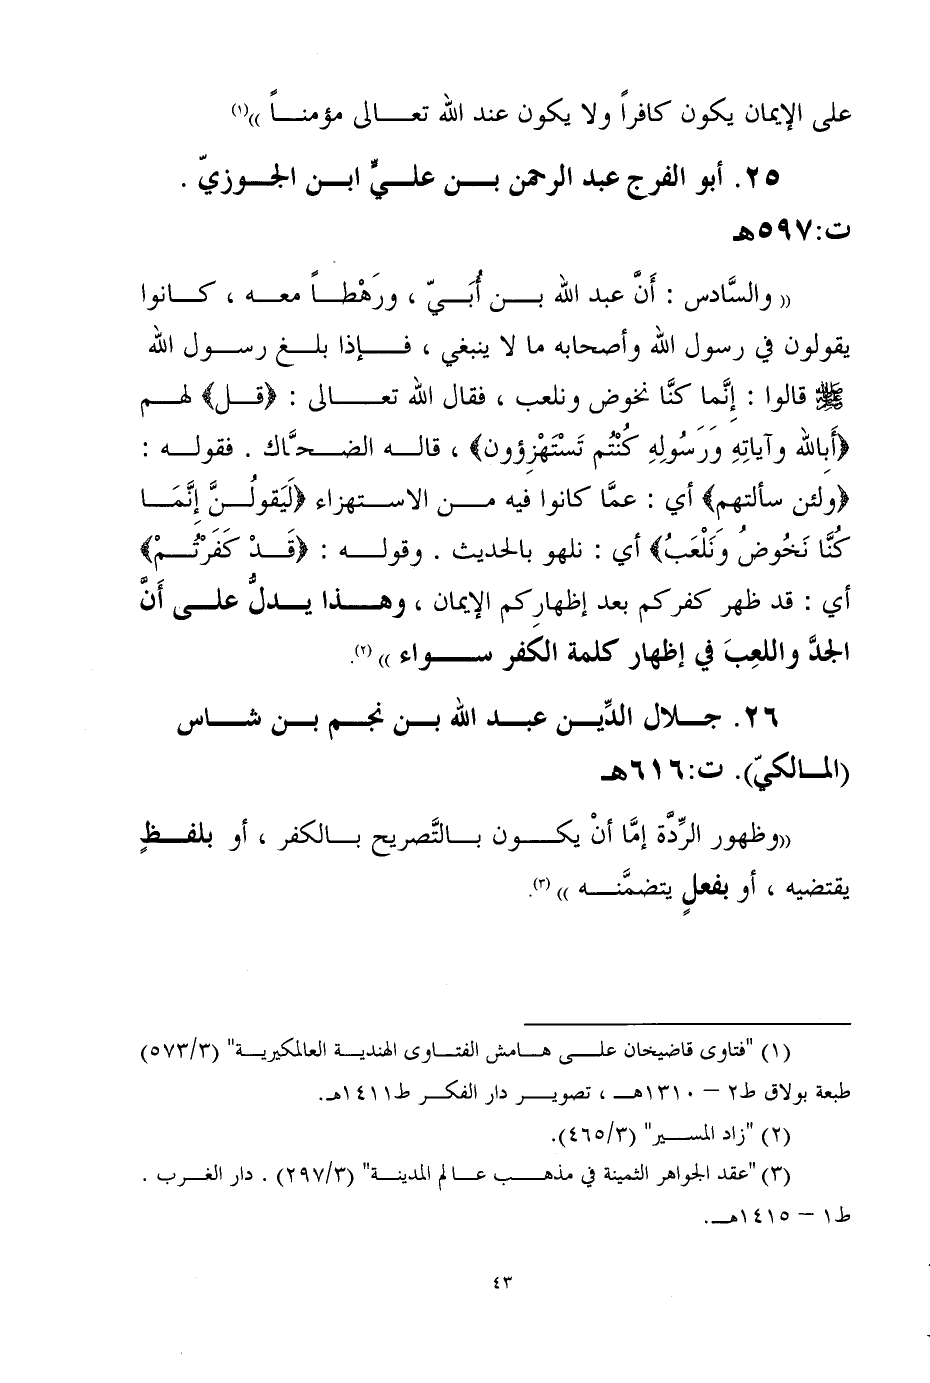 على الإيمان يكون كافراً ولا يكون عند الله تعالى مؤمناً ))(١)
٢٥. أبو الفرج عبد الرحمن بن عليٍّ ابن الجوزيّ .
ت:٥٩٧هـ
(( والسَّادس : أنَّ عبد الله بن أُبَيّ ، ورَهْطاً معه ، كانوا
يقولون في رسول الله وأصحابه ما لا ينبغي ، فإذا بلغ رسول الله
ﷺ قالوا : إنَّما كنَّا نخوض ونلعب ، فقال الله تعالى : ﴿قل﴾ لهم
﴿أَبالله وآياتِهِ وَرَسُولِهِ كُنْتُم تَسْتَهْزِؤون﴾ ، قاله الضحَّاك . فقوله :
﴿ولئن سألتهم﴾ أي : عمَّا كانوا فيه من الاستهزاء ﴿لَيَقولُنَّ إِنَّمَا
كُنَّا نَخُوضُ وَنَلْعَبُ﴾ أي : نلهو بالحديث . وقوله : ﴿قَدْ كَفَرْتُمْ﴾
أي : قد ظهر كفركم بعد إظهارِكم الإيمان ، وهذا يدلُّ على أنَّ
الجدَّ واللعِبَ في إظهار كلمة الكفر سواء ))(٢).
٢٦. جلال الدِّين عبد الله بن نجم بن شاس
(المالكيّ). ت:٦١٦هـ
((وظهور الرِّدَّة إمَّا أنْ يكون بالتَّصريح بالكفر ، أو بلفظٍ
يقتضيه ، أو بفعلٍ يتضمَّنه ))(٣).
(١) "فتاوى قاضيخان على هامش الفتاوى الهندية العالمكيرية" (٥٧٣/٣)
طبعة بولاق ط٢ – ١٣١٠هـ ، تصوير دار الفكر ط١٤١١هـ.
(٢) "زاد المسير" (٤٦٥/٣).
(٣) "عقد الجواهر الثمينة في مذهب عالم المدينة" (٢٩٧/٣) . دار الغرب .
ط١ – ١٤١٥هـ.
٤٣